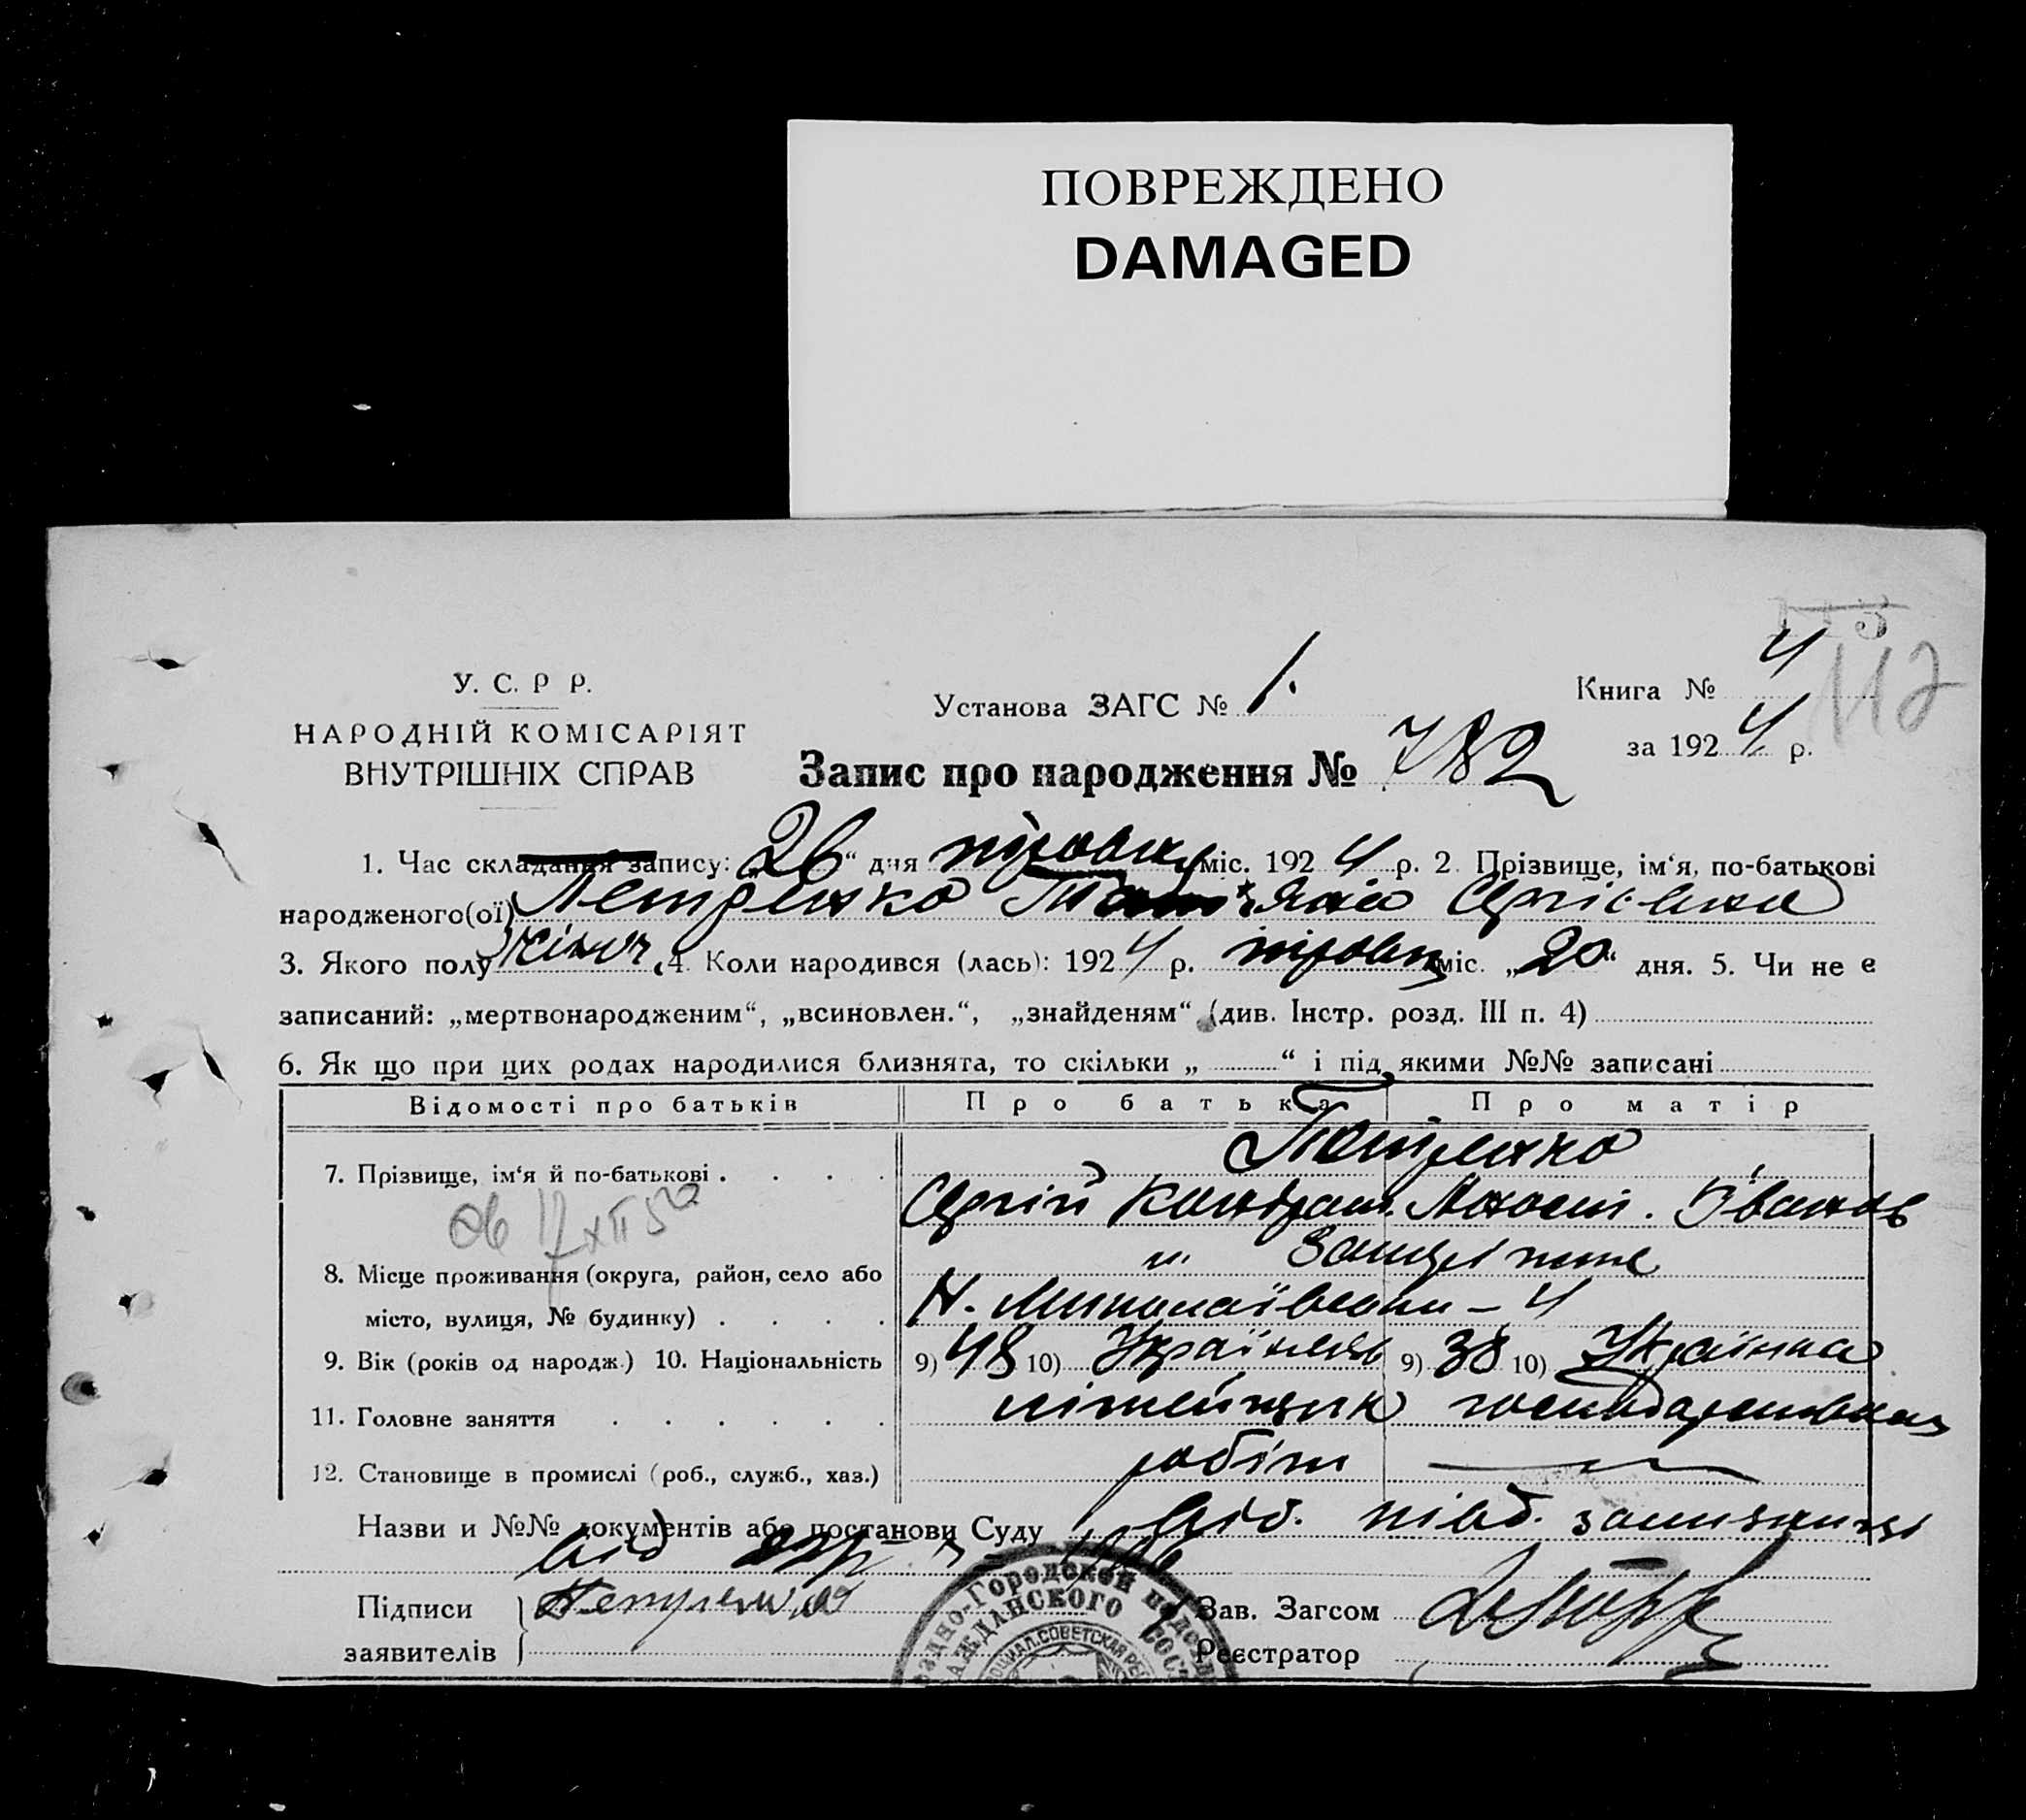 ПОВРЕЖДЕНО
DAMAGED
113
4
112
У. С. Р Р.
Установа ЗАГС № 1.
Книга №
НАРОДНІЙ КОМІСАРІЯТ
за 1924 р.
ВНУТРІШНІХ СПРАВ
Запис про народження № 782
1. Час складання запису: „26“ дня міс. 1924 р. 2. Прізвище, ім‘я, по-батькові
народженого(ої) Петренко Сергіївна
3. Якого полу жіноч. 4. Коли народився (лась): 1924 р. міс. „20“ дня. 5. Чи не є
записаний: „мертвонародженим“, „всиновлен.“, „знайденям“ (див. Інстр. розд. III п. 4)
6. Як що при цих родах народилися близнята, то скільки „ “ і під якими №№ записані
Відомості про батьків Про батька Про матір
Петренко
7. Прізвище, ім‘я й по-батькові
Сергій Кондрат. Іванов
8. Місце проживання (округа, район, село або
місто, вулиця, № будинку)
Н. Миколаївська – 4
9. Вік (років од народж.) 10. Національність 9) 48 10) Українець 9) 38 10) Українка
11. Головне заняття
12. Становище в промислі (роб., служб., хаз.) робітн
Назви и №№ документів або постанови Суду від. півд. залізниці
від
Підписи Зав. Загсом
заявителів Реєстратор